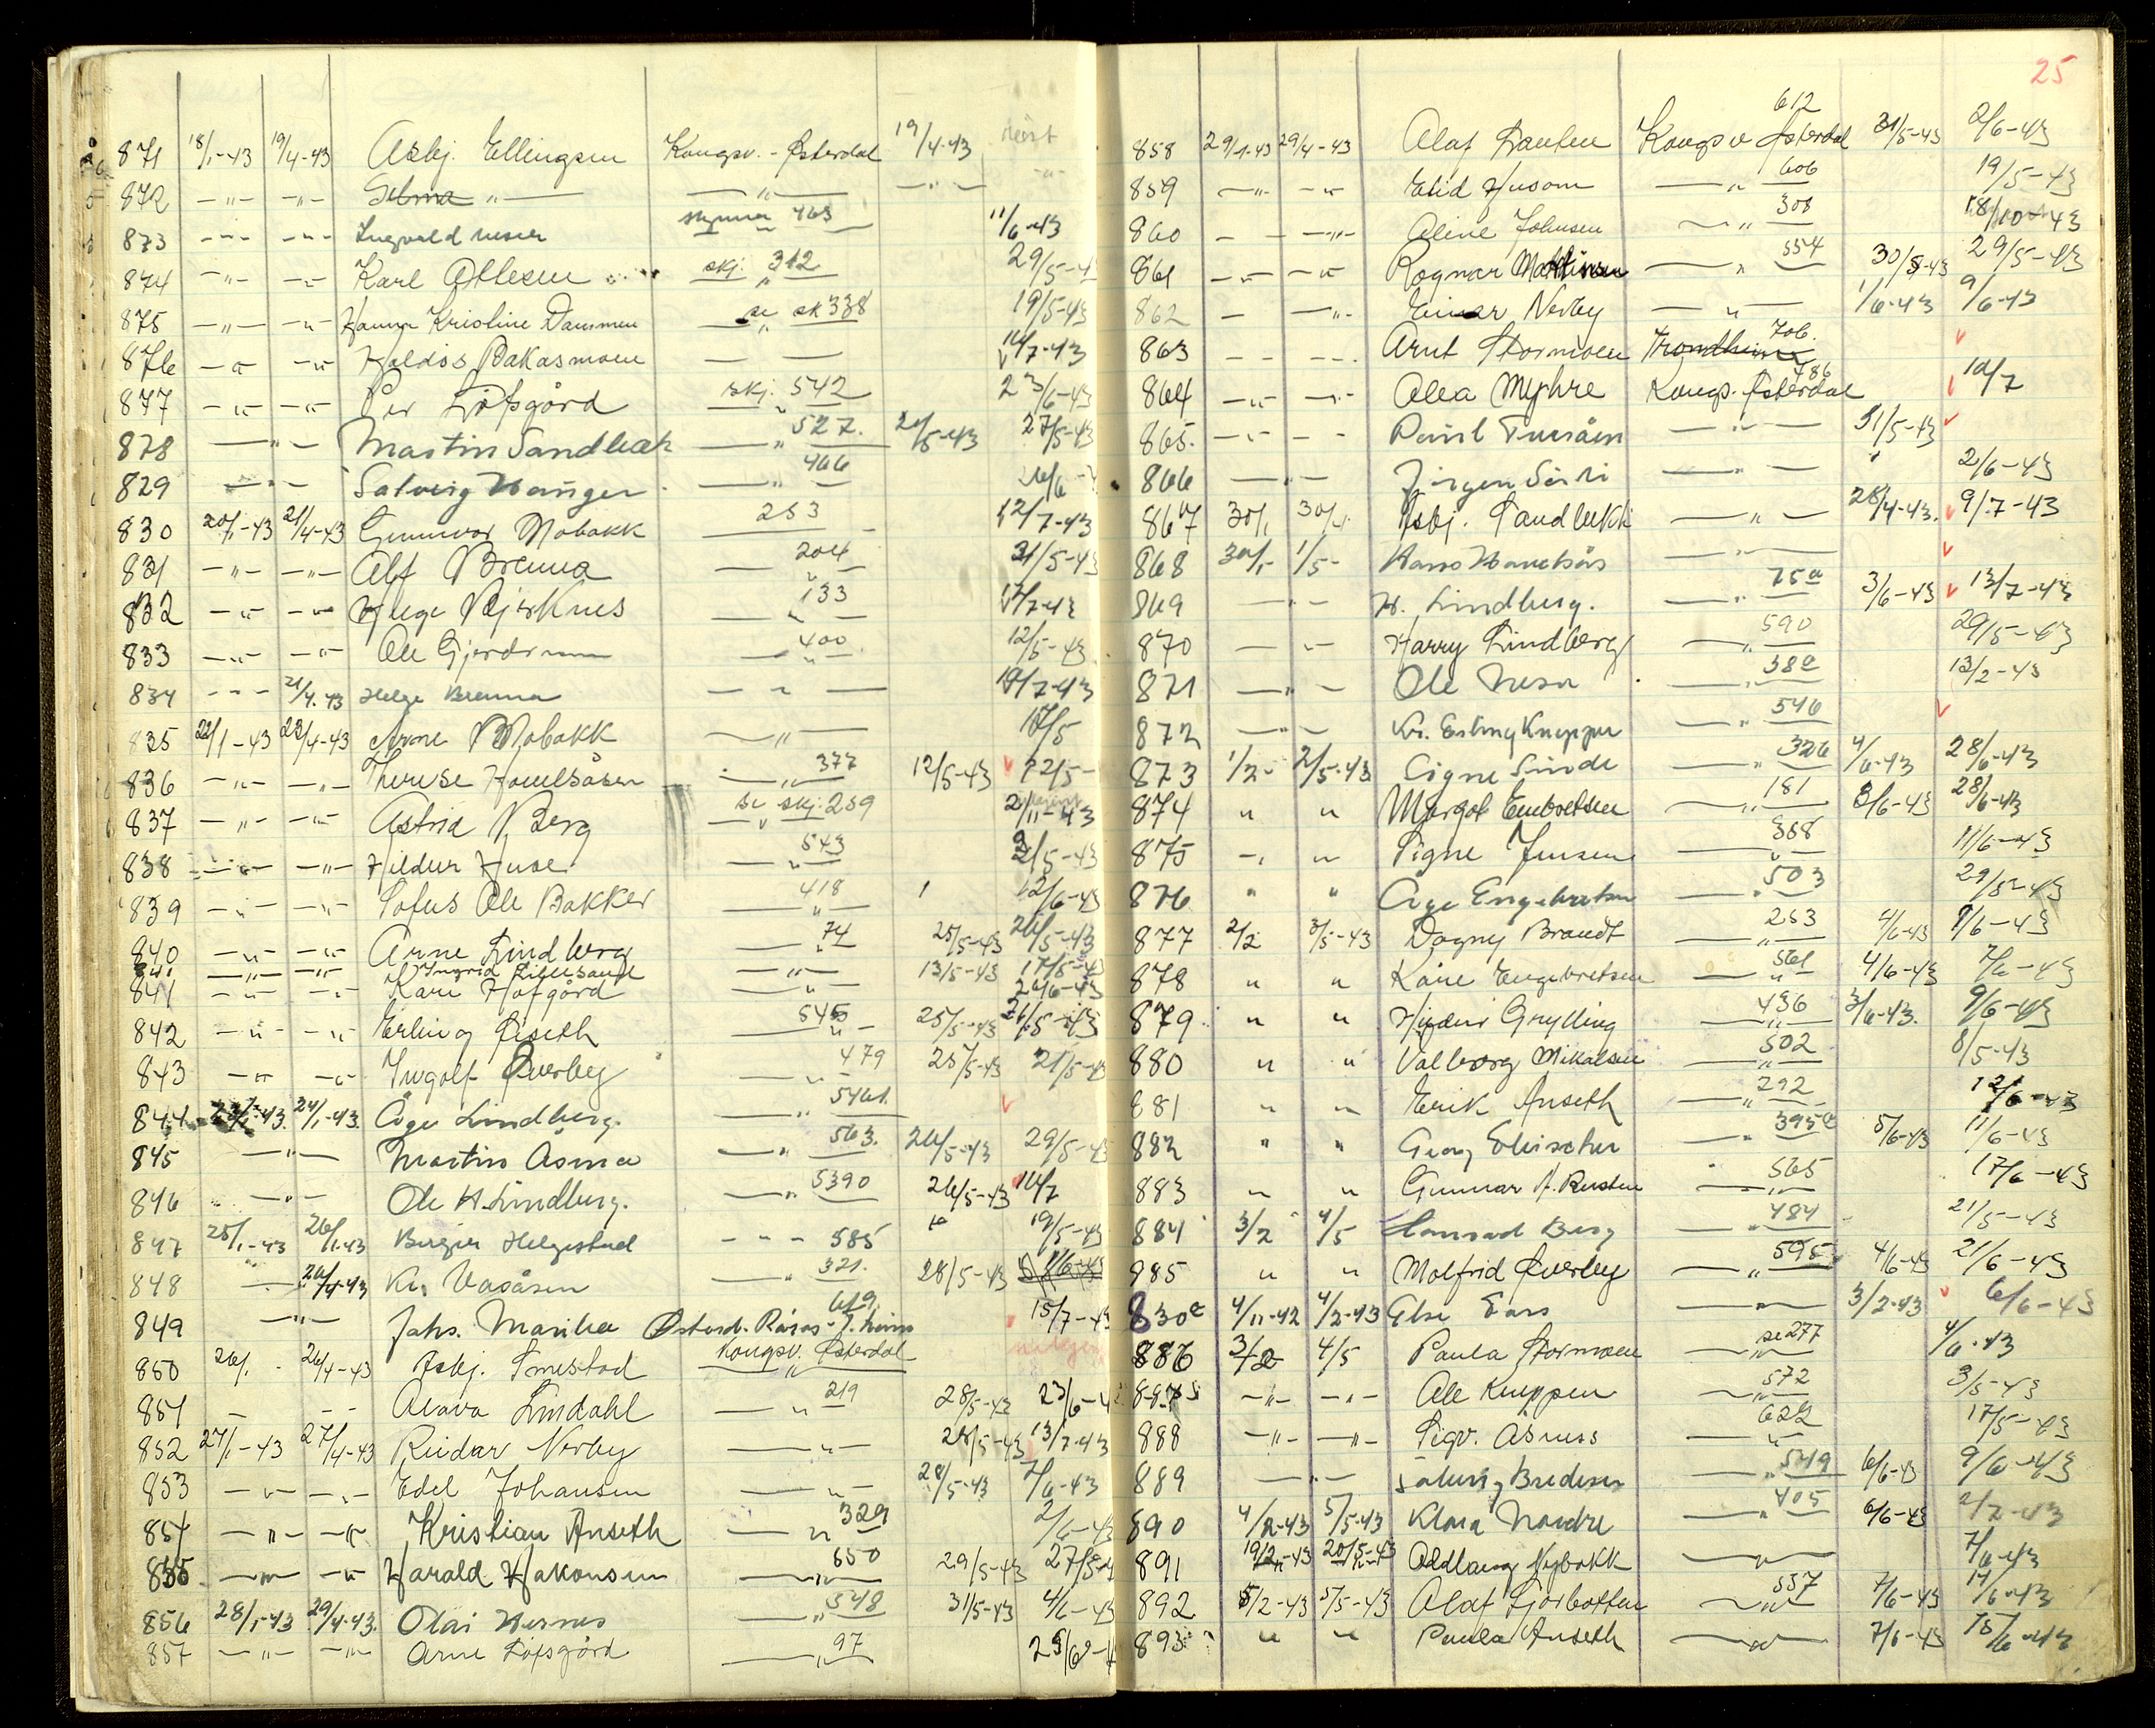 871 18/1-43 19/4-43 Asbj. Ellingsen Kongsv. - Østerdal 19/4-43
872 -"- -"- Selma -"- -"- -"- -"-
873 -"- -"- Ingvald 463 11/6-43
874 -"- -"- Karl Ottesen skj. 312 29/5-43
875 -"- -"- Hanna Kristine se sk 338 19/5-43
876 -"- -"- Haldis Bakåsmoen 7-43
877 -"- -"- Per Löfsgård skj. 542 23/6-43
878 -"- Martin Sandbakk -"- 527. 5-43 27/5-43
829 -"- Solveig Hanger -"- 466 26/6
830 20/1-43 21/4-43 Gunnvor Mobakk 253 12/7-43
831 -"- -"- Alf Brenna 204 31/5-43
832 -"- -"- Helge Bjerknes 133 7-43
833 -"- -"- Ole Gjerdrum 400 12/5-43
834 -"- 21/4.43 Helge Brenna -"- 7-43
835 22/1-43 23/4-43 Arne Mobakk -"- 18/5
836 -"- -"- Therese Hanelsåsen -"- 377 12/5-43 12/5-
837 -"- -"- Astrid Berg se skj. 259 11-43
838 -"- -"- Hildur Huse -"- 543 5-43
839 -"- -"- Sofus Ole Bakker -"- 418 12/6-43
840 -"- -"- Arne Lindberg -"- 74 25/5-43 26/5-43
841 -"- -"- Ingrid Lillesand -"- 13/5-43 17/5-43
841 -"- -"- Kari Hofgård -"- 26/6-43
842 -"- -"- Erling Øiseth -"- 545 25/5-43 21/5-43
843 -"- -"- Ingolf Øverby -"- 479 25/5-43 21/5-43
844 23/1-43. 24/1-43. Åge Lindberg. -"- 5461.
845 -"- Martin Åsmo -"- 563. 26/5-43 29/5-43
846 -"- Ole H. Lindberg. -"- 5390 26/5-43 10/7
847 25/1-43 26/1-43 Birger Helgestad -"- 585 19/5-43
848 -"- 26/4-43 Kr. Vasåsen -"- 321. 28/5-43
849 -"- Johs. Østerd. Røros - 619 15/7-43
850 26/1 26/4-43 Asbj. Smestad Kongsv. Østerdal
851 - -"- Lindahl -"- 219 28/5-43 23/6-4
852 27/1-43 27/4-43 Reidar Nerby -"- 28/5-43 13/7-43
853 -"- -"- Edel Johansen -"- 28/5-43 7/6-43
854 -"- -"- Kristian Anseth -"- 329 2/6-43
855 -"- -"- Harald Hakonsen -"- 650 29/5-43 27/5-4
856 28/1-43 29/4-43. Olai Hernes -"- 548 31/5-43 4/6-43
857 -"- -"- Arne Löfsgård -"- 97 25/6-4
25
858 29/1-43 29/4-43 Olaf Kongsv Østerdal 612 31/5-43 2/6-43
859 -"- -"- Husom -"- 606 19/5-43
860 - -"- Aline Johnsen -"- 308 18/10-43
861 -"- -"- Ragnar Martinsen -"- 554 30/5-43 29/5-43
862 - -"- Einar Nerby -"- 1/6-43 9/6-43
863 - - - - Arnt Stormoen Trondheim 706.
864 -"- -"- Alea Myhre Kongs. Østerdal 486 10/7
865. -"- - - Paul -"- 31/5-43
866 -"- Jörgen -"- 2/6-43
867 30/1 30/4. Asbj. Sandbekk -"- 28/4-43. 9/7-43
868 30/1- 1/5- Hans Hanelsås -"-
869 -"- H. Lindberg. -"- 75a 3/6-43 13/7-43
870 -"- Harry Lindberg -"- 590 29/5-43
871 -"- Ole -"- 382 13/2-43
872 -"- Kr. Erling Knippen -"- 546
873 1/2- 2/5-43 Signe Sinde -"- 326 4/6-43 28/6-43
874 " " Margot Embretsen -"- 181 3/6-43 28/6-43
875 -" " Signe Jensen -"- 358 11/6-43
876 " " Åge Engebretsen -"- 503 29/5-43
877 2/2 3/5-43 Dagny Brandt -"- 253 4/6-43 9/6-43
878 " " Kåre Engebretsen -"- 561 4/6-43 7/6-43
879 " " Grylling -"- 436 3/6-43. 9/6-43
880 " " Valborg Mikalsen -"- 502 8/5-43
881 " " Erik Anseth -"- 292 12/6-43
882 " " Georg -"- 395 5/6-43 11/6-43
883 " " Gunnar A. Rusten -"- 565 17/6-43
884 3/2 4/5 Berg -"- 484 21/5-43
985 " " Molfrid Øverby -"- 595 4/6-43 21/6-43
830a 4/11-42 4/2-43 Else -"- 3/2-43 6/6-43
886 3/2 4/5 Paula Stormoen -"- se 277 4/6-43
887 -"- -"- Ole Knippen -"- 572 3/5-43
888 -"- -"- Sigv. Åsness -"- 622 17/5-43
889 -"- Solveig Bredesen -"- 549 6/6-43 9/6-43
890 4/2-43 5/5-43 Klara Nordre -"- 405 6/6-43 2/7-43
891 19/2-43 20/5-43 Oddlaug Nybakk -"- 7/6-43
892 5/2-43 5/5-43 Olaf Fjorbotten -"- 557 7/6-43 17/6-43
893 " " Paula Anseth -"- 7/6-43 15/6-43